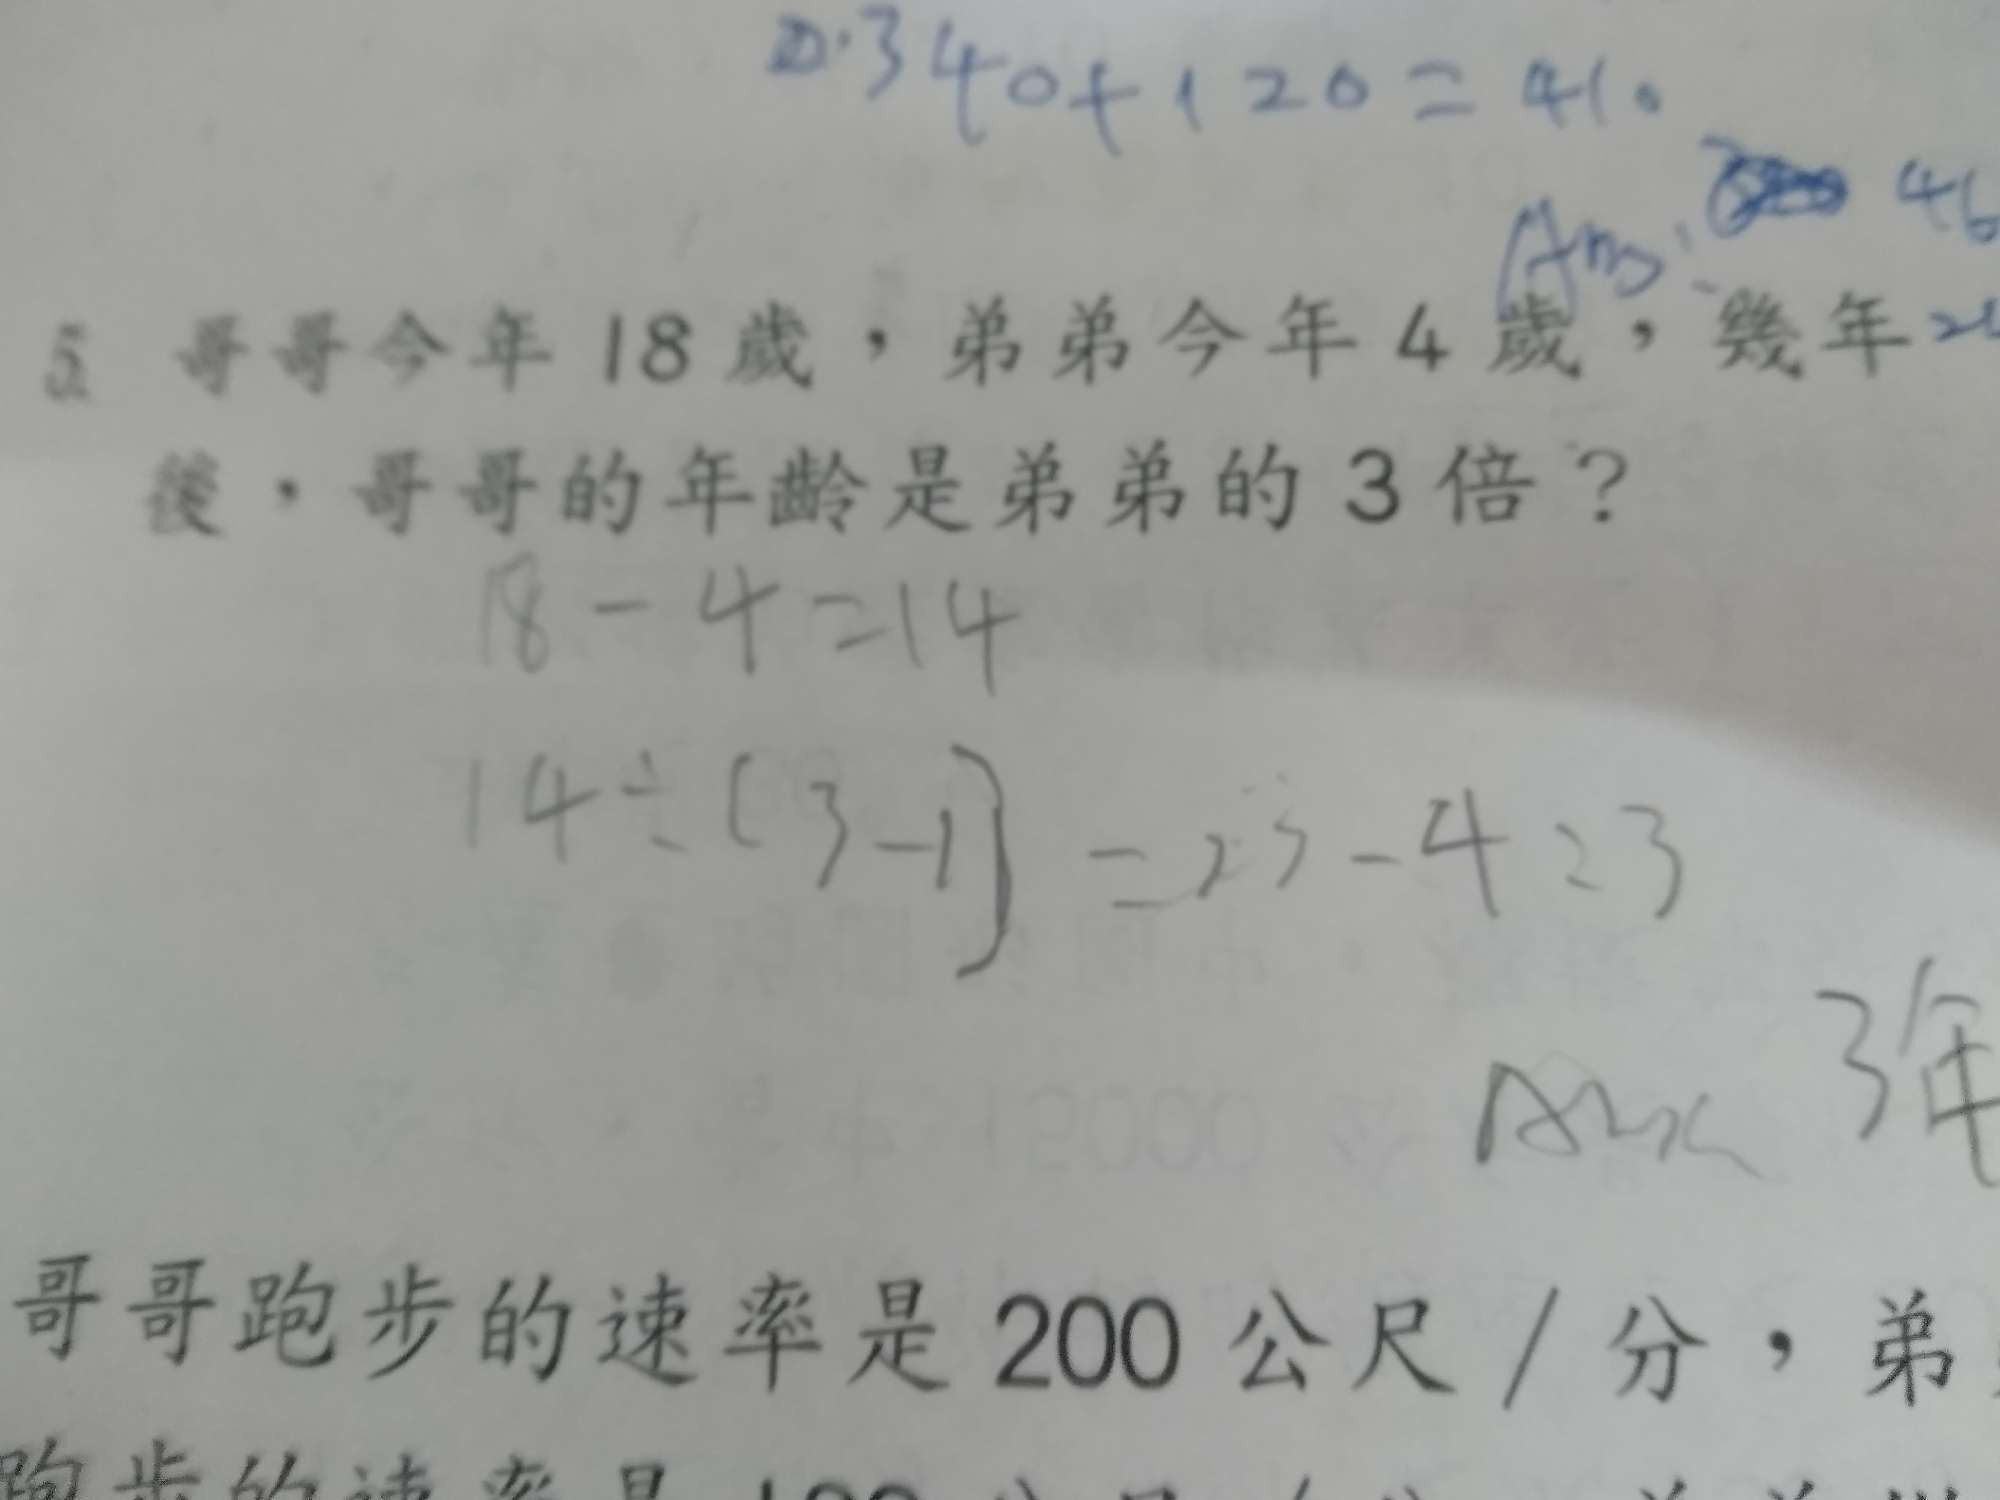 340+120=41.
Ans: 46
5. 哥哥今年 18 歲，弟弟今年 4 歲，幾年
後，哥哥的年齡是弟弟的 3 倍？
18-4=14
14÷(3-1)
-4=3
Ans 3年
哥哥跑步的速率是 200 公尺/分，弟
跑步的速率是